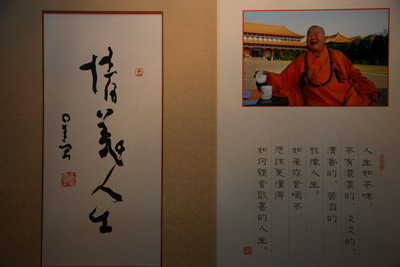 情義人生
星雲
人生如茶味，
茶有濃濃的、淡淡的，
清香的、苦澀的
就像人生。
如果你會喝茶，
應該更懂得
如何體會歡喜的人生。